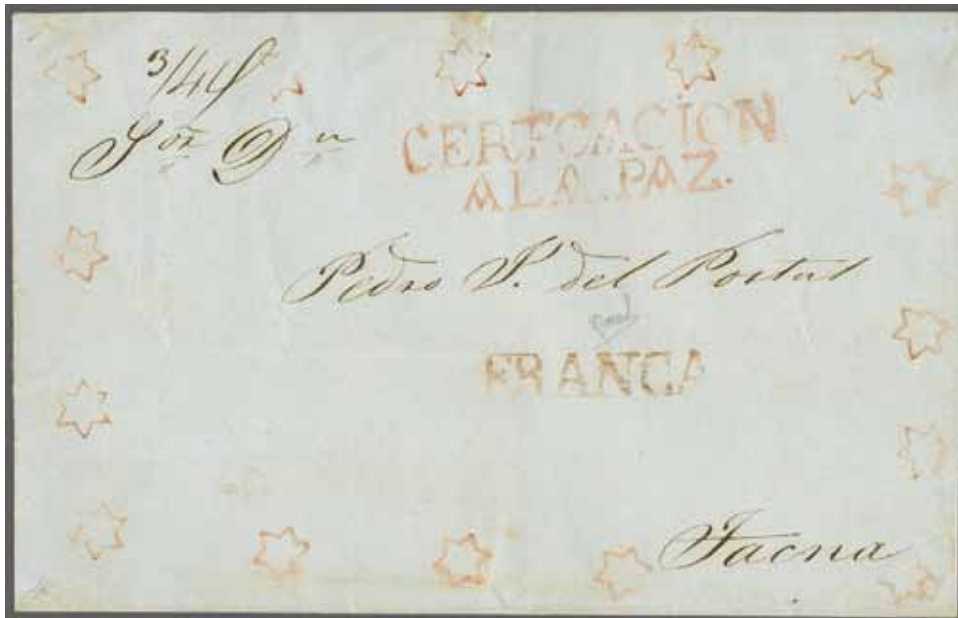 3/4
Sor Dn
CERTFCACION
A LA.PAZ.
Pedro P. del Portal
FRANCA
Tacna